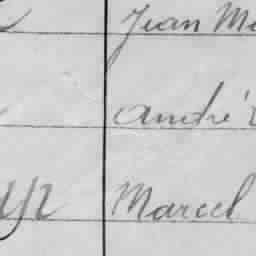 Jean M
André
Marcel